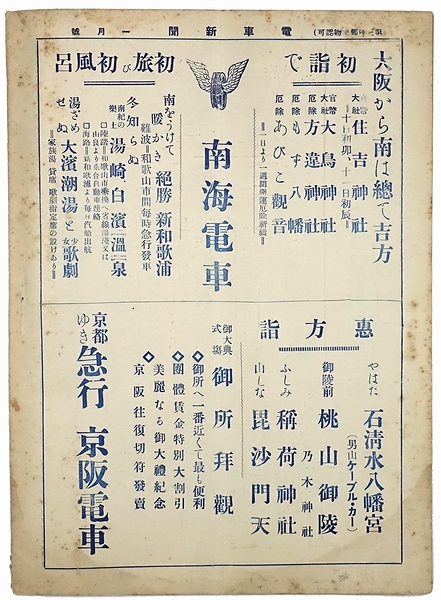 電車新聞 一月號
大阪から南は總て吉方
初詣で
官幣大社 住吉神社
＝十日初卯、十一日初辰＝
官幣大社 大鳥神社
厄除 方違神社
厄除 もず八幡
厄除 あびこ觀音
＝一日より一週間開運厄除祈禱＝
南海電車
初旅び 初風呂
南をうけて暖かき 絕勝 新和歌浦
難波＝和歌山市間每時急行發車
冬知らぬ南紀の樂土 湯崎白濱溫泉
湯ざめせぬ 大濱潮湯と少女歌劇
＝家族湯 貸席 歌劇指定席の設けあり＝
惠方詣
やはた 石淸水八幡宮
(男山ケーブル・カー)
御陵前 桃山御陵
乃木神社
ふしみ 稻荷神社
山しな 毘沙門天
御大典式場 御所拜觀
◆御所へ一番近くて最も便利
◆團體賃金特別大割引
◆美麗なる御大禮紀念
京阪往復切符發賣
京都ゆき 急行 京阪電車